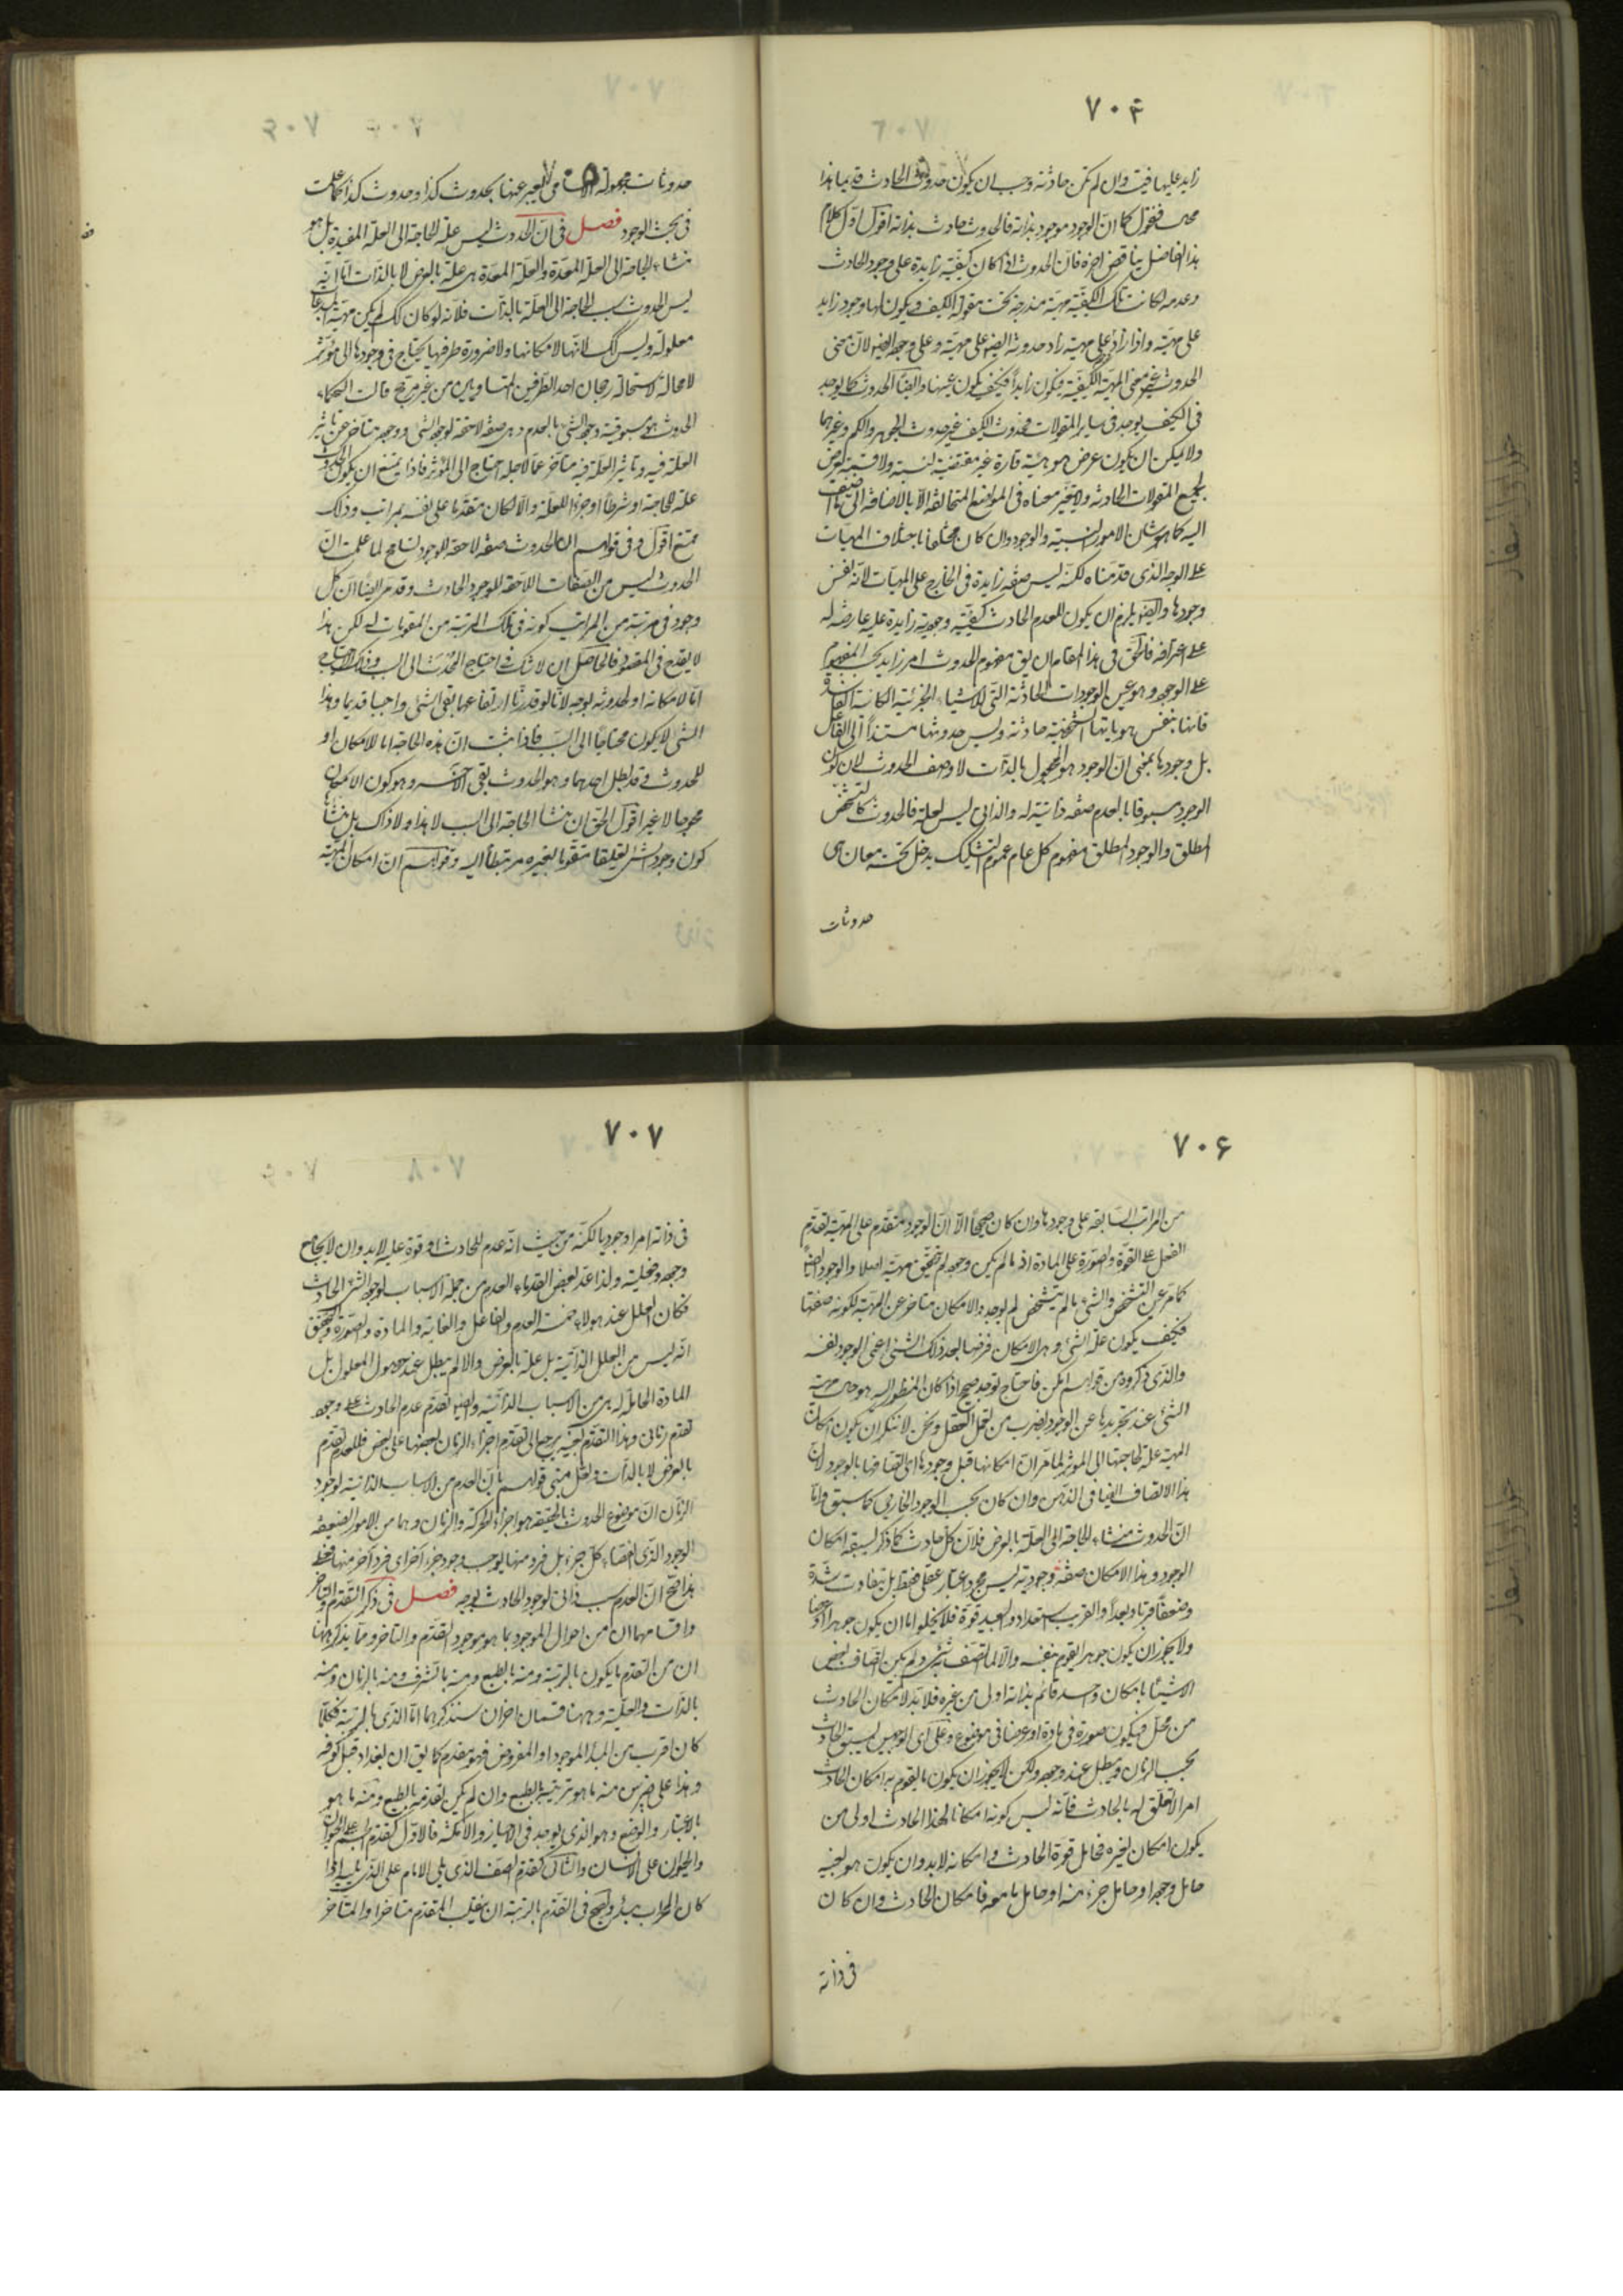 ٧٠٤
زايد عليها فيت وان لم تكن حادثة وجب ان يكون حدوث الحادث قديما هذا
محال فنقول كما ان الوجود موجود بذاته فالحدوث حادث بذاته اقول اول كلام
هذا الفاضل يناقض اخره فان الحدوث اذا كان كيفية زايدة على وجود الحادث
وعدمه لكانت تلك الكيفية مهية مندرجة تحت مقولة الكيف ويكون لها وجود زايد
على مهيته واذا زاد على مهيته زاد حدوثه ايضا على مهيته وعلى وجوده ايضا لان معنى
الحدوث غير معنى المهية الكيفية فيكون زايداً فكيف يكون عينها وايضاً الحدوث كما يوجد
فى الكيف يوجد فى ساير المقولات فحدوث الكيف غير حدوث الجوهر والكم وغيرهما
ولا يمكن ان يكون عرض هو هيئة قارة غير مقتضية لنسبة ولا قسمة يعرض
لجميع المقولات الحادثة ولا يتغير معناه فى المواضع المتخالفة الا بالاضافة الى ما اضيف
اليه كما هو شان الامور النسبية والوجود وان كان مختلفا باختلاف المهيات
على الوجه الذى قدمناه لكنه ليس صفة زايدة فى الخارج على المهيات لانه نفس
وجودها وايضا يلزم ان يكون للعدم الحادث كيفية وجودية زايدة عليه عارضة له
على اعترافه فالحق فى هذا المقام ان يق مفهوم الحدوث امر زايد بحسب المفهوم
على الوجود وهو عين الوجودات الحادثة التى للاشياء الجزئية الكائنة الفاسدة
فانها بنفس هوياتها الشخصية حادثة وليس حدوثها مستنداً الى الفاعل
بل وجودها بمعنى ان الوجود هو المجعول بالذات لا وصف الحدوث لان كون
الوجود مسبوقا بالعدم صفة ذاتية له والذاتى ليس لعلة فالحدوث كالتشخص
المطلق والوجود المطلق مفهوم كلى عام عموم التشكيك يدخل تحته معان هى
حدوثات
حدوثات مجهولة الاسامى التعبير عنها بحدوث كذا وحدوث كذا كما علمت
فى بحث الوجود فصل فى ان الحدوث ليس علة الحاجة الى العلة المفيدة بل هو
منشاء الحاجة الى العلة المعدة والعلة المعدة هى علة بالعرض لا بالذات اما انه
ليس الحدوث سبب الحاجة الى العلة بالذات فلانه لو كان كك لم يكن مهية المبدعات
معلولة وليس كك لانها لامكانها ولا ضرورة طرفيها يحتاج فى وجودها الى مؤثر
لا محالة لاستحالة رجحان احد الطرفين المتساويين من غير مرجح قالت الحكماء
الحدوث هو مسبوقية وجود الشئ بالعدم وهى صفة لاحقة لوجود الشئ ووجوده متاخر عن تاثير
العلة فيه وتاثير العلة فيه متاخر عما لاجله احتاج الى المؤثر فاذا يمتنع ان يكون الحدوث
علة للحاجة او شرطاً او جزءا للعلة والا لكان متقدما على نفسه بمراتب وذلك
ممتنع اقول وفى قولهم ان الحدوث صفة لاحقة للوجود تسامح لما علمت ان
الحدوث ليس من الصفات اللاحقة للوجود الحادث وقد مر ايضاً ان كل
وجود فى مرتبة من المراتب كونه فى تلك المرتبة من المقومات له لكن هذا
لا يقدح فى المقصود فالحاصل ان لا شك فى احتياج المحدث الى السبب وذلك الاحتياج
اما لامكانه او لحدوثه بوجه لانا لو قدرنا ارتفاعهما بقى الشئ واجبا قديما وهذا
الشئ لا يكون محتاجا الى السبب فاذا ثبت ان هذه الحاجة اما للامكان او
للحدوث وقد بطل احدهما وهو الحدوث بقى الاخر وهو كون الامكان
محوجا لا غير اقول الحق ان منشا الحاجة الى السبب لا هذا ولا ذاك بل منشاها
كون وجود الشئ تعلقيا متقوما بغيره مرتبطاً اليه وقولهم ان امكان المهية
٧٠٦
من المراتب السابقة على وجودها وان كان صحيحاً الا ان الوجود متقدم على المهية تقدم
الفعل على القوة والصورة على المادة اذ ما لم يكن وجود لم يتحقق مهية اصلا والوجود ايضاً
كما مر عين التشخص والشئ ما لم يتشخص لم يوجد والامكان متاخر عن المهية لكونه صفتها
فكيف يكون علة الشئ وهى الامكان فرضها بعد ذلك الشئ اعنى الوجود نفسه
والذى ذكروه من قولهم امكن فاحتاج فوجد صحيح اذا كان المنظور اليه هو حال مهية
الشئ عند تجريدها عن الوجود بضرب من تعمل العقل ونحن لا ننكر ان يكون امكان
المهية علة لحاجتها الى المؤثر لما مر ان امكانها قبل وجودها اى اتصافها بالوجود لان
هذا الاتصاف ايضا فى الذهن وان كان بحسب الوجود الخارجى كما سبق واما
ان الحدوث منشاء الحاجة الى العلة بالعرض فلان كل حادث كما ذكر يسبقه امكان
الوجود وهذا الامكان صفة وجودية ليس مجرد اعتبار عقلى فقط بل يتفاوت شدة
وضعفاً قربا وبعداً والقريب استعداد والبعيد قوة فلا يخلو اما ان يكون جوهرا او عرضا
ولا يجوز ان يكون جوهرا يقوم بنفسه والا لما اتصف به شئ ولم يكن اتصاف بعض
الاشياء بامكان واحد قائم بذاته اولى من غيره فلا بد لامكان الحادث
من محل فيكون صورة فى مادة او عرضا فى موضوع وعلى اى الوجهين يسبق الحادث
بحسب الزمان ويبطل عند وجوده ولكن لا يجوز ان يكون ما يقوم به امكان الحادث
امرا لا تعلق له بالحادث فانه ليس كونه امكانا لهذا الحادث اولى من
يكون امكان لغيره فحامل قوة الحادث وامكانه لا بد وان يكون هو بعينه
حامل وجوده او حامل جزء منه او حامل ما معه فامكان الحادث وان كان
فى ذاته
٧٠٧
فى ذاته امرا وجوديا لكنه من حيث انه عدم للحادث او قوة عليه لا بد وان لا يجامع
وجوده وفعليته ولذا عد بعض القدماء العدم من جملة الاسباب لوجود الشئ الحادث
فكان العلل عند هولاء خمسة العدم والفاعل والغاية والمادة والصورة والتحقيق
انه ليس من العلل الذاتية بل علة بالعرض والا لم يبطل عند حصول المعلول بل
المادة الحاملة له هى من الاسباب الذاتية وايضا تقدم عدم الحادث على وجوده
تقدم زمانى وهذا التقدم بعينه يرجع الى تقدم اجزاء الزمان بعضها على بعض فللعدم تقدم
بالعرض لا بالذات ولعل مبنى قولهم بان العدم من الاسباب الذاتية لوجود
الزمان ان موضوع الحدوث بالحقيقة هو اجزاء الحركة والزمان وهما من الامور الضعيفة
الوجود الذى انقضاء كل جزء بل فرد منها يوجب وجود جزء آخر اى فرد آخر منها فظهر
بهذا صح ان العدم سبب ذاتى لوجود الحادث بوجه فصل فى ذكر التقدم والتاخر
واقسامهما ان من احوال الموجود بما هو موجود التقدم والتاخر ومما يذكر ههنا
ان من التقدم ما يكون بالرتبة ومنه بالطبع ومنه بالشرف ومنه بالزمان ومنه
بالذات والعلية وههنا قسمان اخران سنذكرهما اما الذى بالرتبة فكلما
كان اقرب من المبدأ الموجود او المفروض فهو مقدم كما يق ان بغداد قبل كوفة
وهذا على ضربين منه ما هو ترتيبه بالطبع وان لم يكن تقدمه بالطبع ومنه ما هو
بالاعتبار والوضع وهو الذى يوجد فى الاحياز والامكنة فالاول كتقدم الجسم على الحيوان
والحيوان على الانسان والثانى كتقدم الصف الذى يلى الامام على الذى يليه اذا
كان المحراب مبدأ ويصح فى التقدم بالرتبة ان ينقلب المتقدم متاخرا والمتاخر